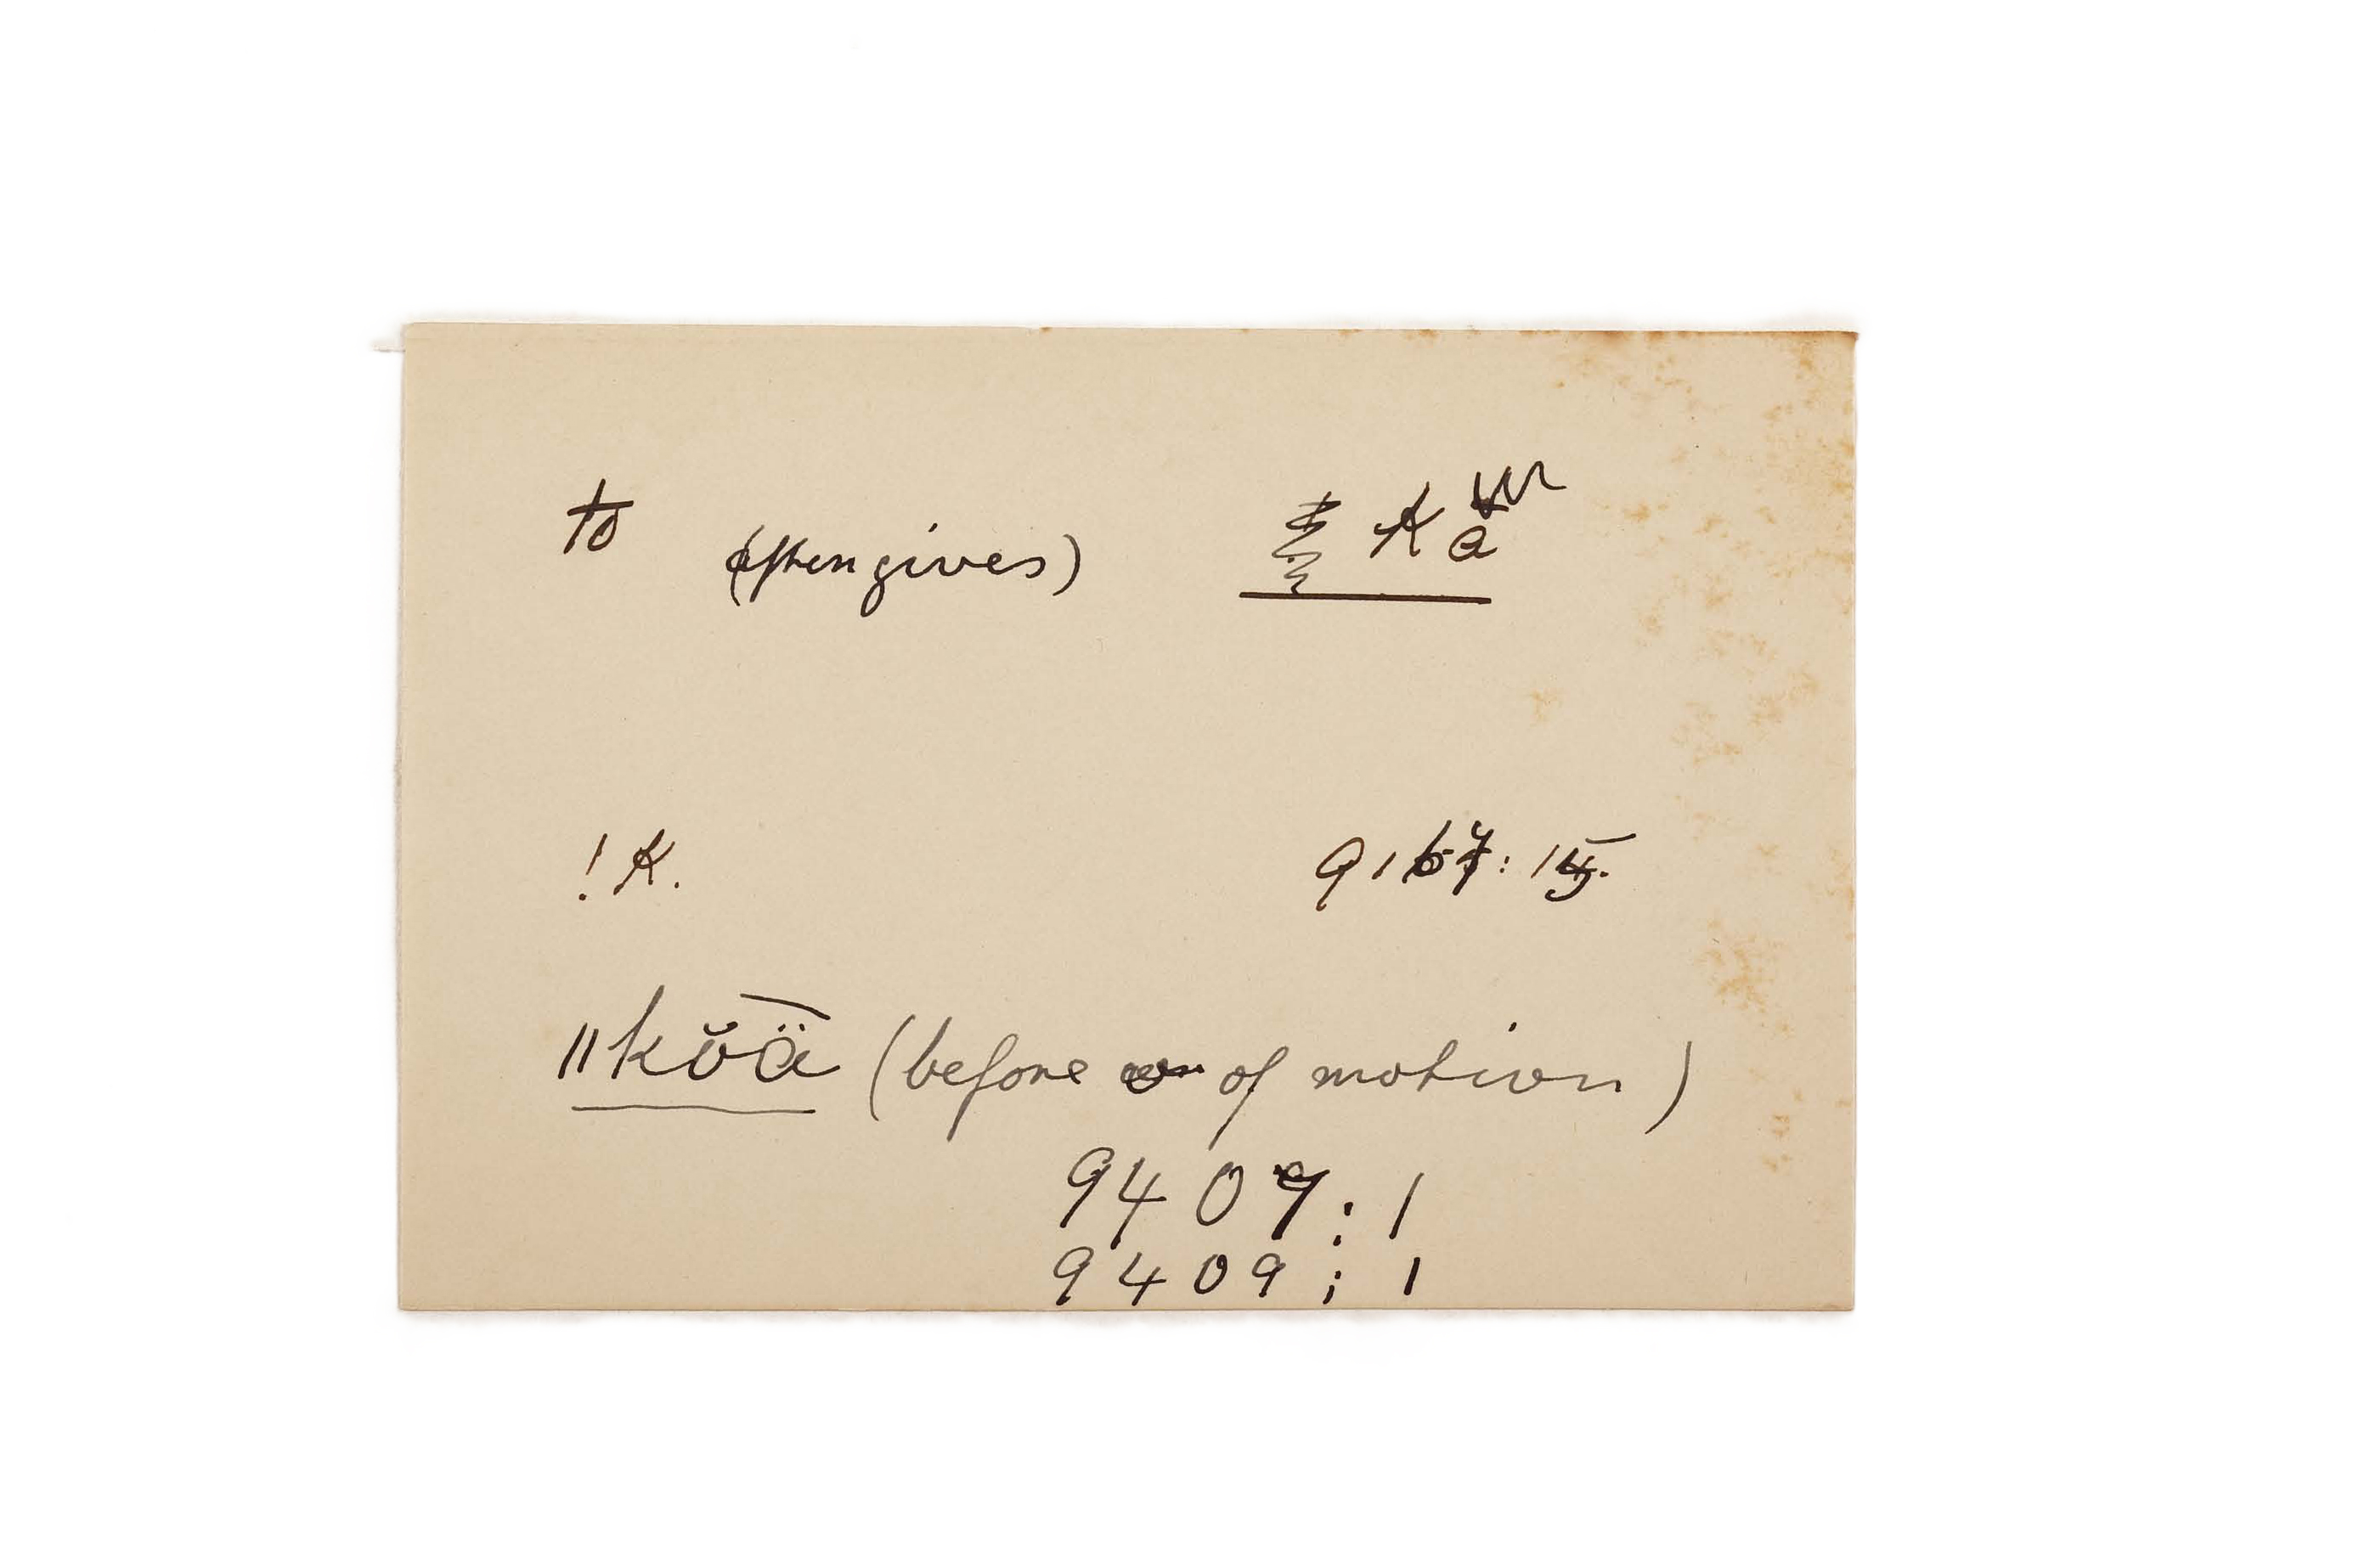 to (after gives) Ka
! K.
9167:15.
ǁkŭä̅ (before of motion)
9409:1
9409:1